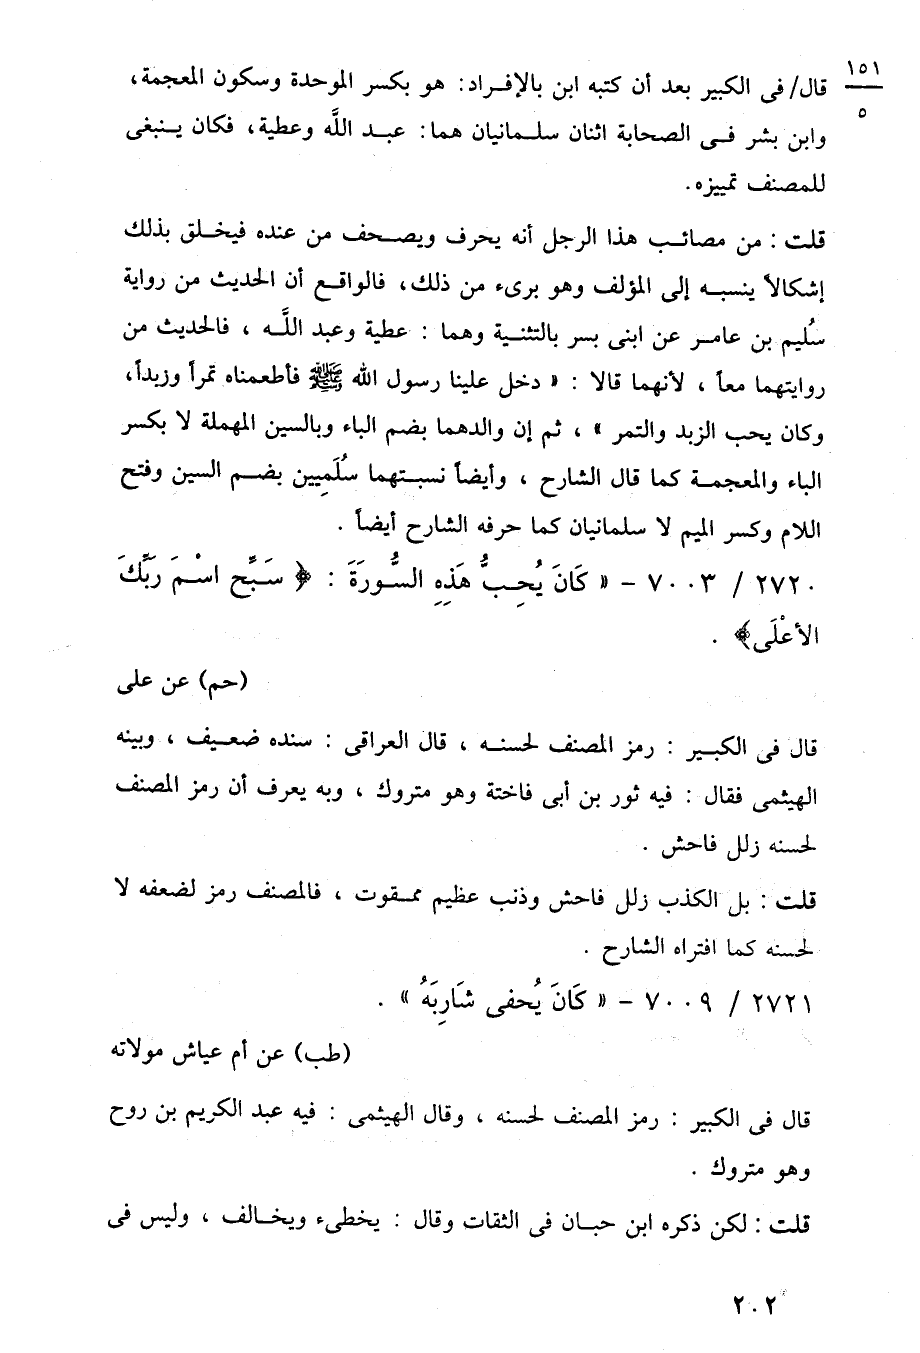 ١٥١
٥
قال/ فى الكبير بعد أن كتبه ابن بالإفراد: هو بكسر الموحدة وسكون المعجمة،
وابن بشر فى الصحابة اثنان سلمانيان هما: عبد اللَّه وعطية، فكان ينبغى
للمصنف تمييزه.
قلت : من مصائب هذا الرجل أنه يحرف ويصحف من عنده فيخلق بذلك
إشكالاً ينسبه إلى المؤلف وهو برىء من ذلك، فالواقع أن الحديث من رواية
سُليم بن عامر عن ابنى بسر بالتثنية وهما : عطية وعبد اللَّه ، فالحديث من
روايتهما معاً ، لأنهما قالا : « دخل علينا رسول الله ﷺ فأطعمناه تمراً وزبداً،
وكان يحب الزبد والتمر » ، ثم إن والدهما بضم الباء وبالسين المهملة لا بكسر
الباء والمعجمة كما قال الشارح ، وأيضاً نسبتهما سُلَمِيين بضم السين وفتح
اللام وكسر الميم لا سلمانيان كما حرفه الشارح أيضاً .
٢٧٢٠ / ٧٠٠٣ – « كَانَ يُحِبُّ هَذِهِ السُّورَةَ : ﴿ سَبِّحِ اسْمَ رَبِّكَ
الأَعْلَى﴾ .
(حم) عن على
قال فى الكبير : رمز المصنف لحسنه ، قال العراقى : سنده ضعيف ، وبينه
الهيثمى فقال : فيه ثور بن أبى فاختة وهو متروك ، وبه يعرف أن رمز المصنف
لحسنه زلل فاحش .
قلت : بل الكذب زلل فاحش وذنب عظيم ممقوت ، فالمصنف رمز لضعفه لا
لحسنه كما افتراه الشارح .
٢٧٢١ / ٧٠٠٩ – « كَانَ يُحفى شَارِبَهُ » .
(طب) عن أم عياش مولاته
قال فى الكبير : رمز المصنف لحسنه ، وقال الهيثمى : فيه عبد الكريم بن روح
وهو متروك .
قلت : لكن ذكره ابن حبان فى الثقات وقال : يخطىء ويخالف ، وليس فى
٢٠٢